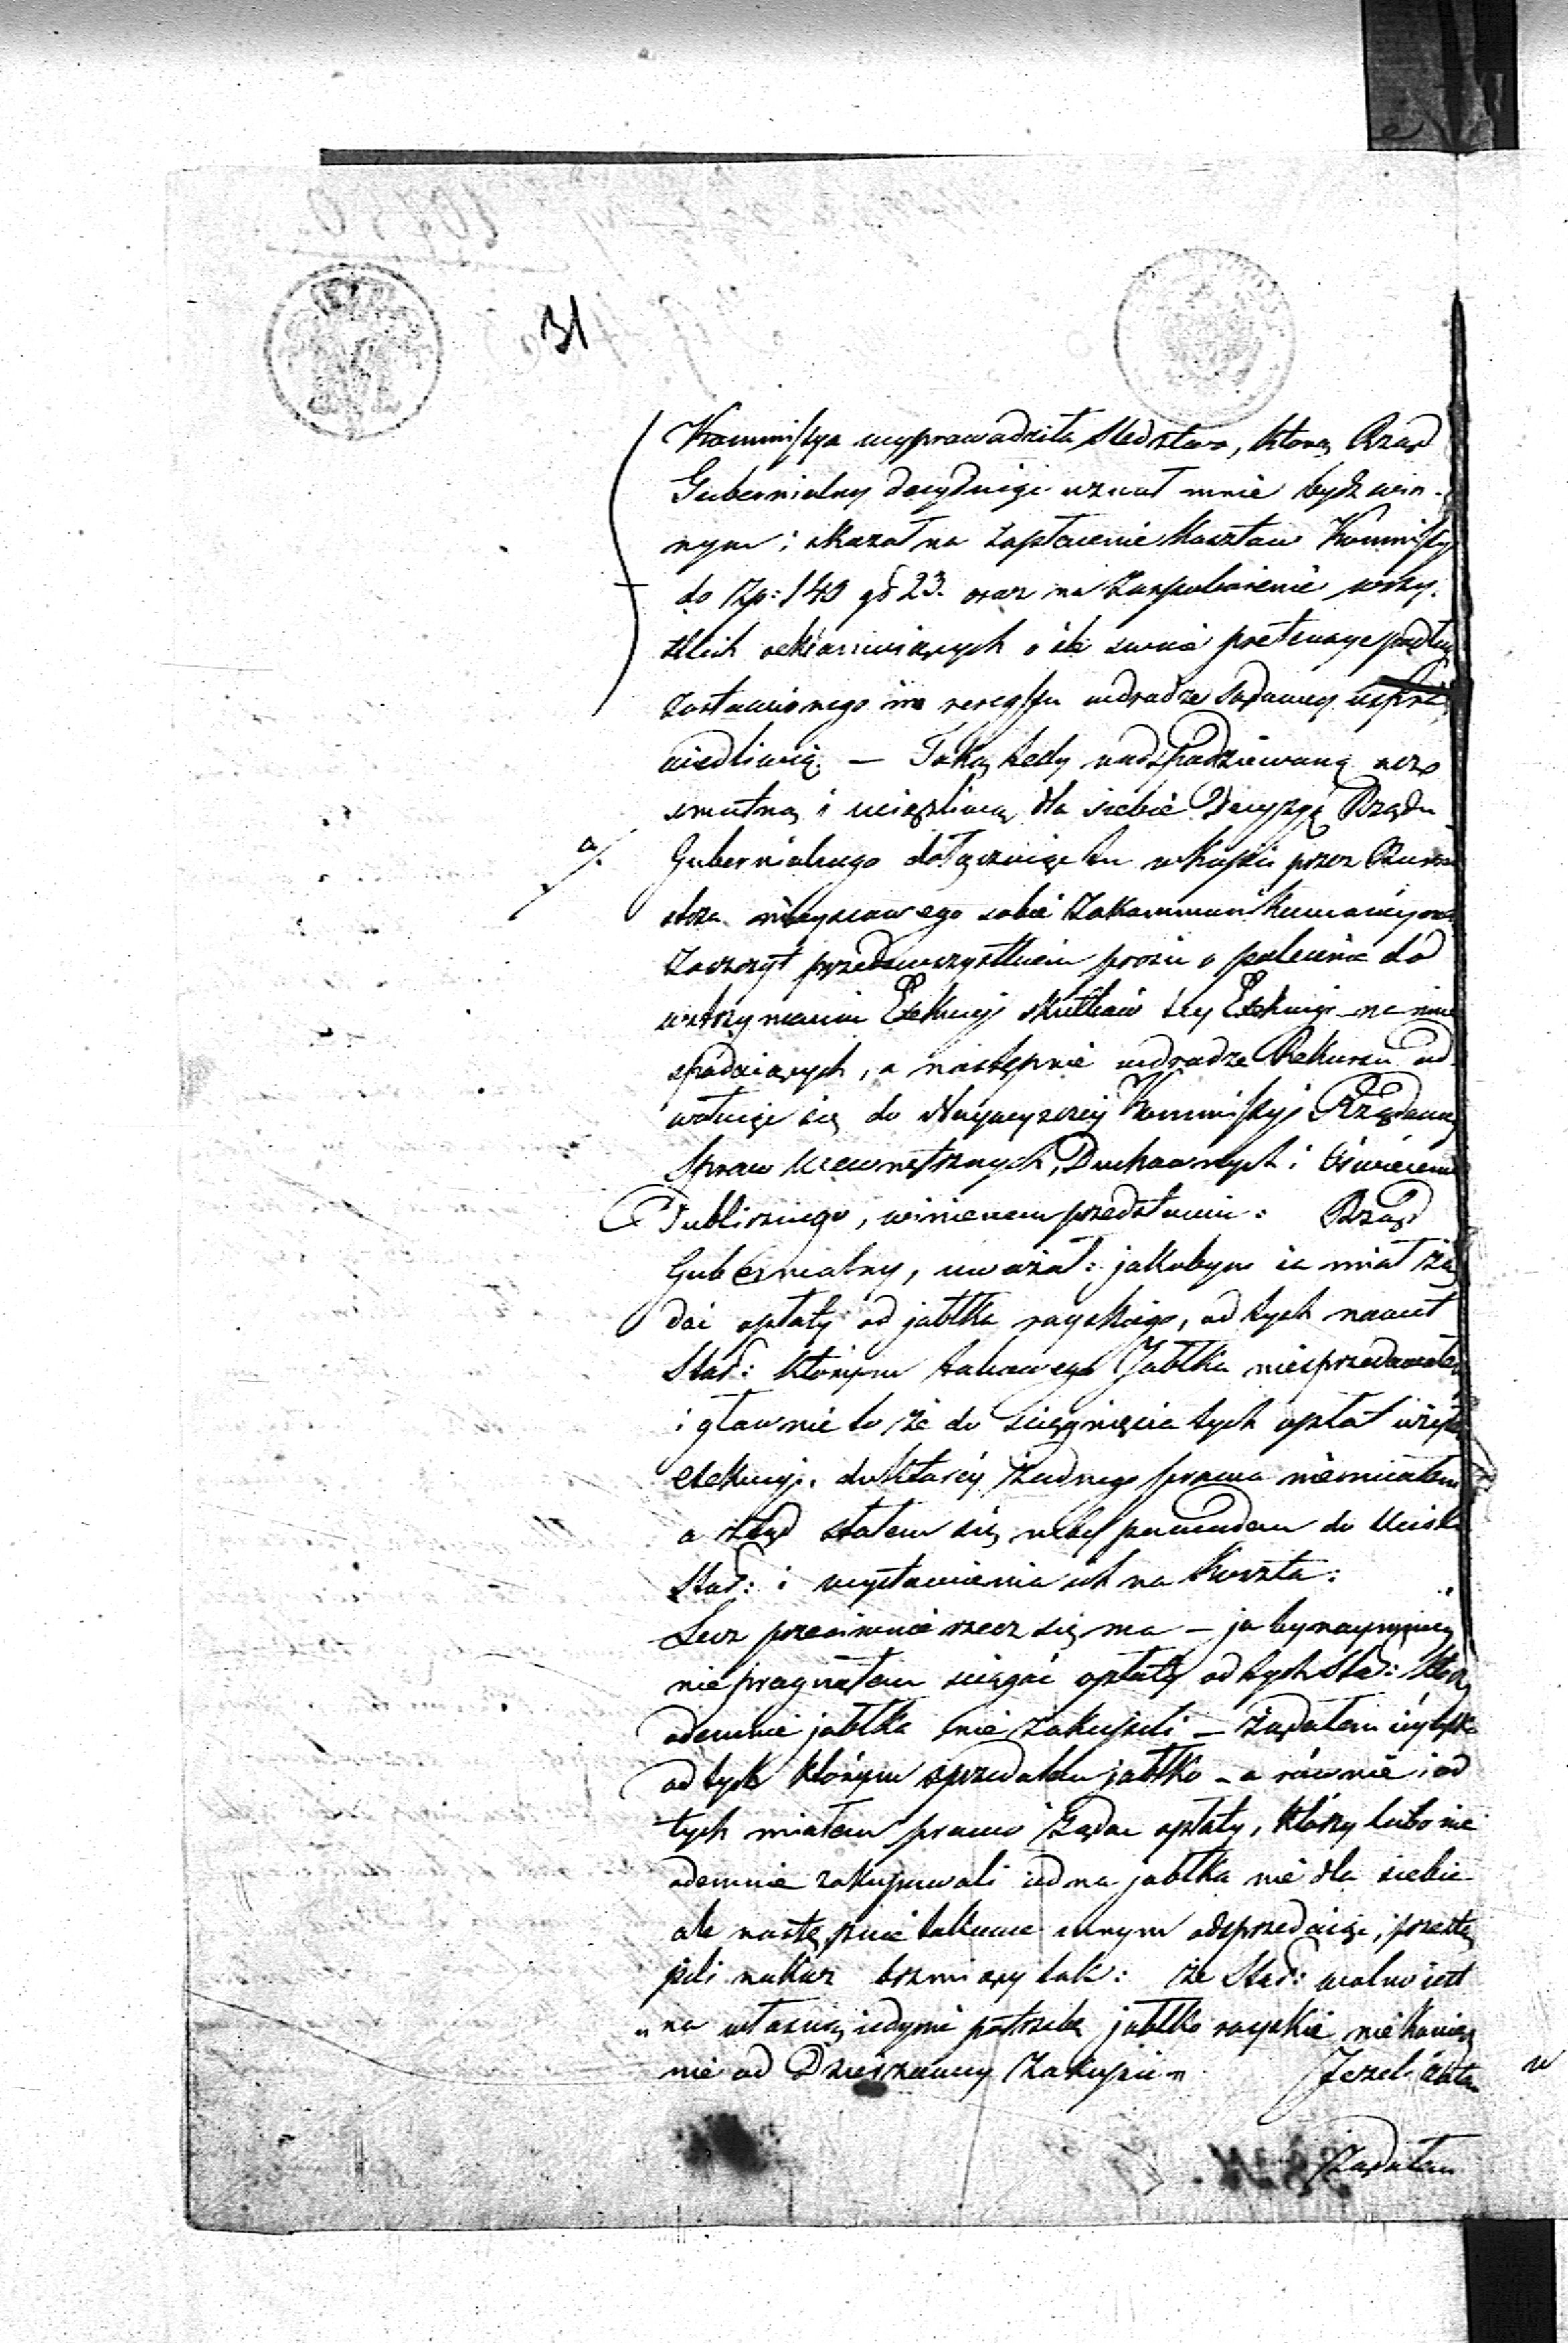 31
Kommissya wyprowadziła Śledztwo, którą Rząd
Gubernialny decydując uznał mnie bydź win-
nym i skazał na zapłacenie kosztów Kommissyi
do Zp: 149 gr 23. oraz na zaspokojenie wszy-
stkich reklamujących o ile swoie pretensye podług
zostawionego im regressu wdrodze Sądowey uspra-
wiedliwią. — Taką tedy nadspodziewaną acz
smutną i uciążliwą dla siebie Decyzyę Rządu
a/. Gubernialnego dołączając tu w kopii przez Burmi-
strza mieyscowego sobie zakommunikowaną
zaszczyt przedewszystkiem proszę o polecenie do
wstrzymania Exekucyi skutków tey Exekucyi na mnie
spadaiących, a następnie wdrodze Rekursu od-
wołuię się do Naywyższey Kommissyi Rządowey
Spraw Wewnętrznych, Duchownych i Oświecenia
Publicznego, winienem przedstawić: Rząd
Gubernialny, uważał: jakobym ia miał żą-
dać opłaty od jabłka rayskiego, od tych nawet
Star: którym takowego Jabłka niesprzedawałem
i głównie to że do ściągnięcia tych opłat użyłem
exekucyi, do którey żadnego prawa niemiałem
a ztąd stałem się niby powodem do ucisku
Star: i wystawienia ich na koszta:
Lecz przeciwnie rzecz się ma — ja bynaymniey
nie pragnąłem ściągać opłaty od tych Star: którzy
odemnie jabłka nie zakupili — żądałem iey tylko
od tych którym sprzedałem jabłko — a równie i od
tych miałem prawo żądać opłaty, którzy lubo nie
odemnie zakupowali jedna jabłka nie dla siebie
ale następnie takowe innym odsprzedaiąc, przestą-
pili nakaz brzmiący tak: że Star: wolno iest
„na własną iedynie potrzebę jabłko rayskie niekoniecz
nie od Dzierżawcy zakupić„ Jeżeli zatem
żądałem